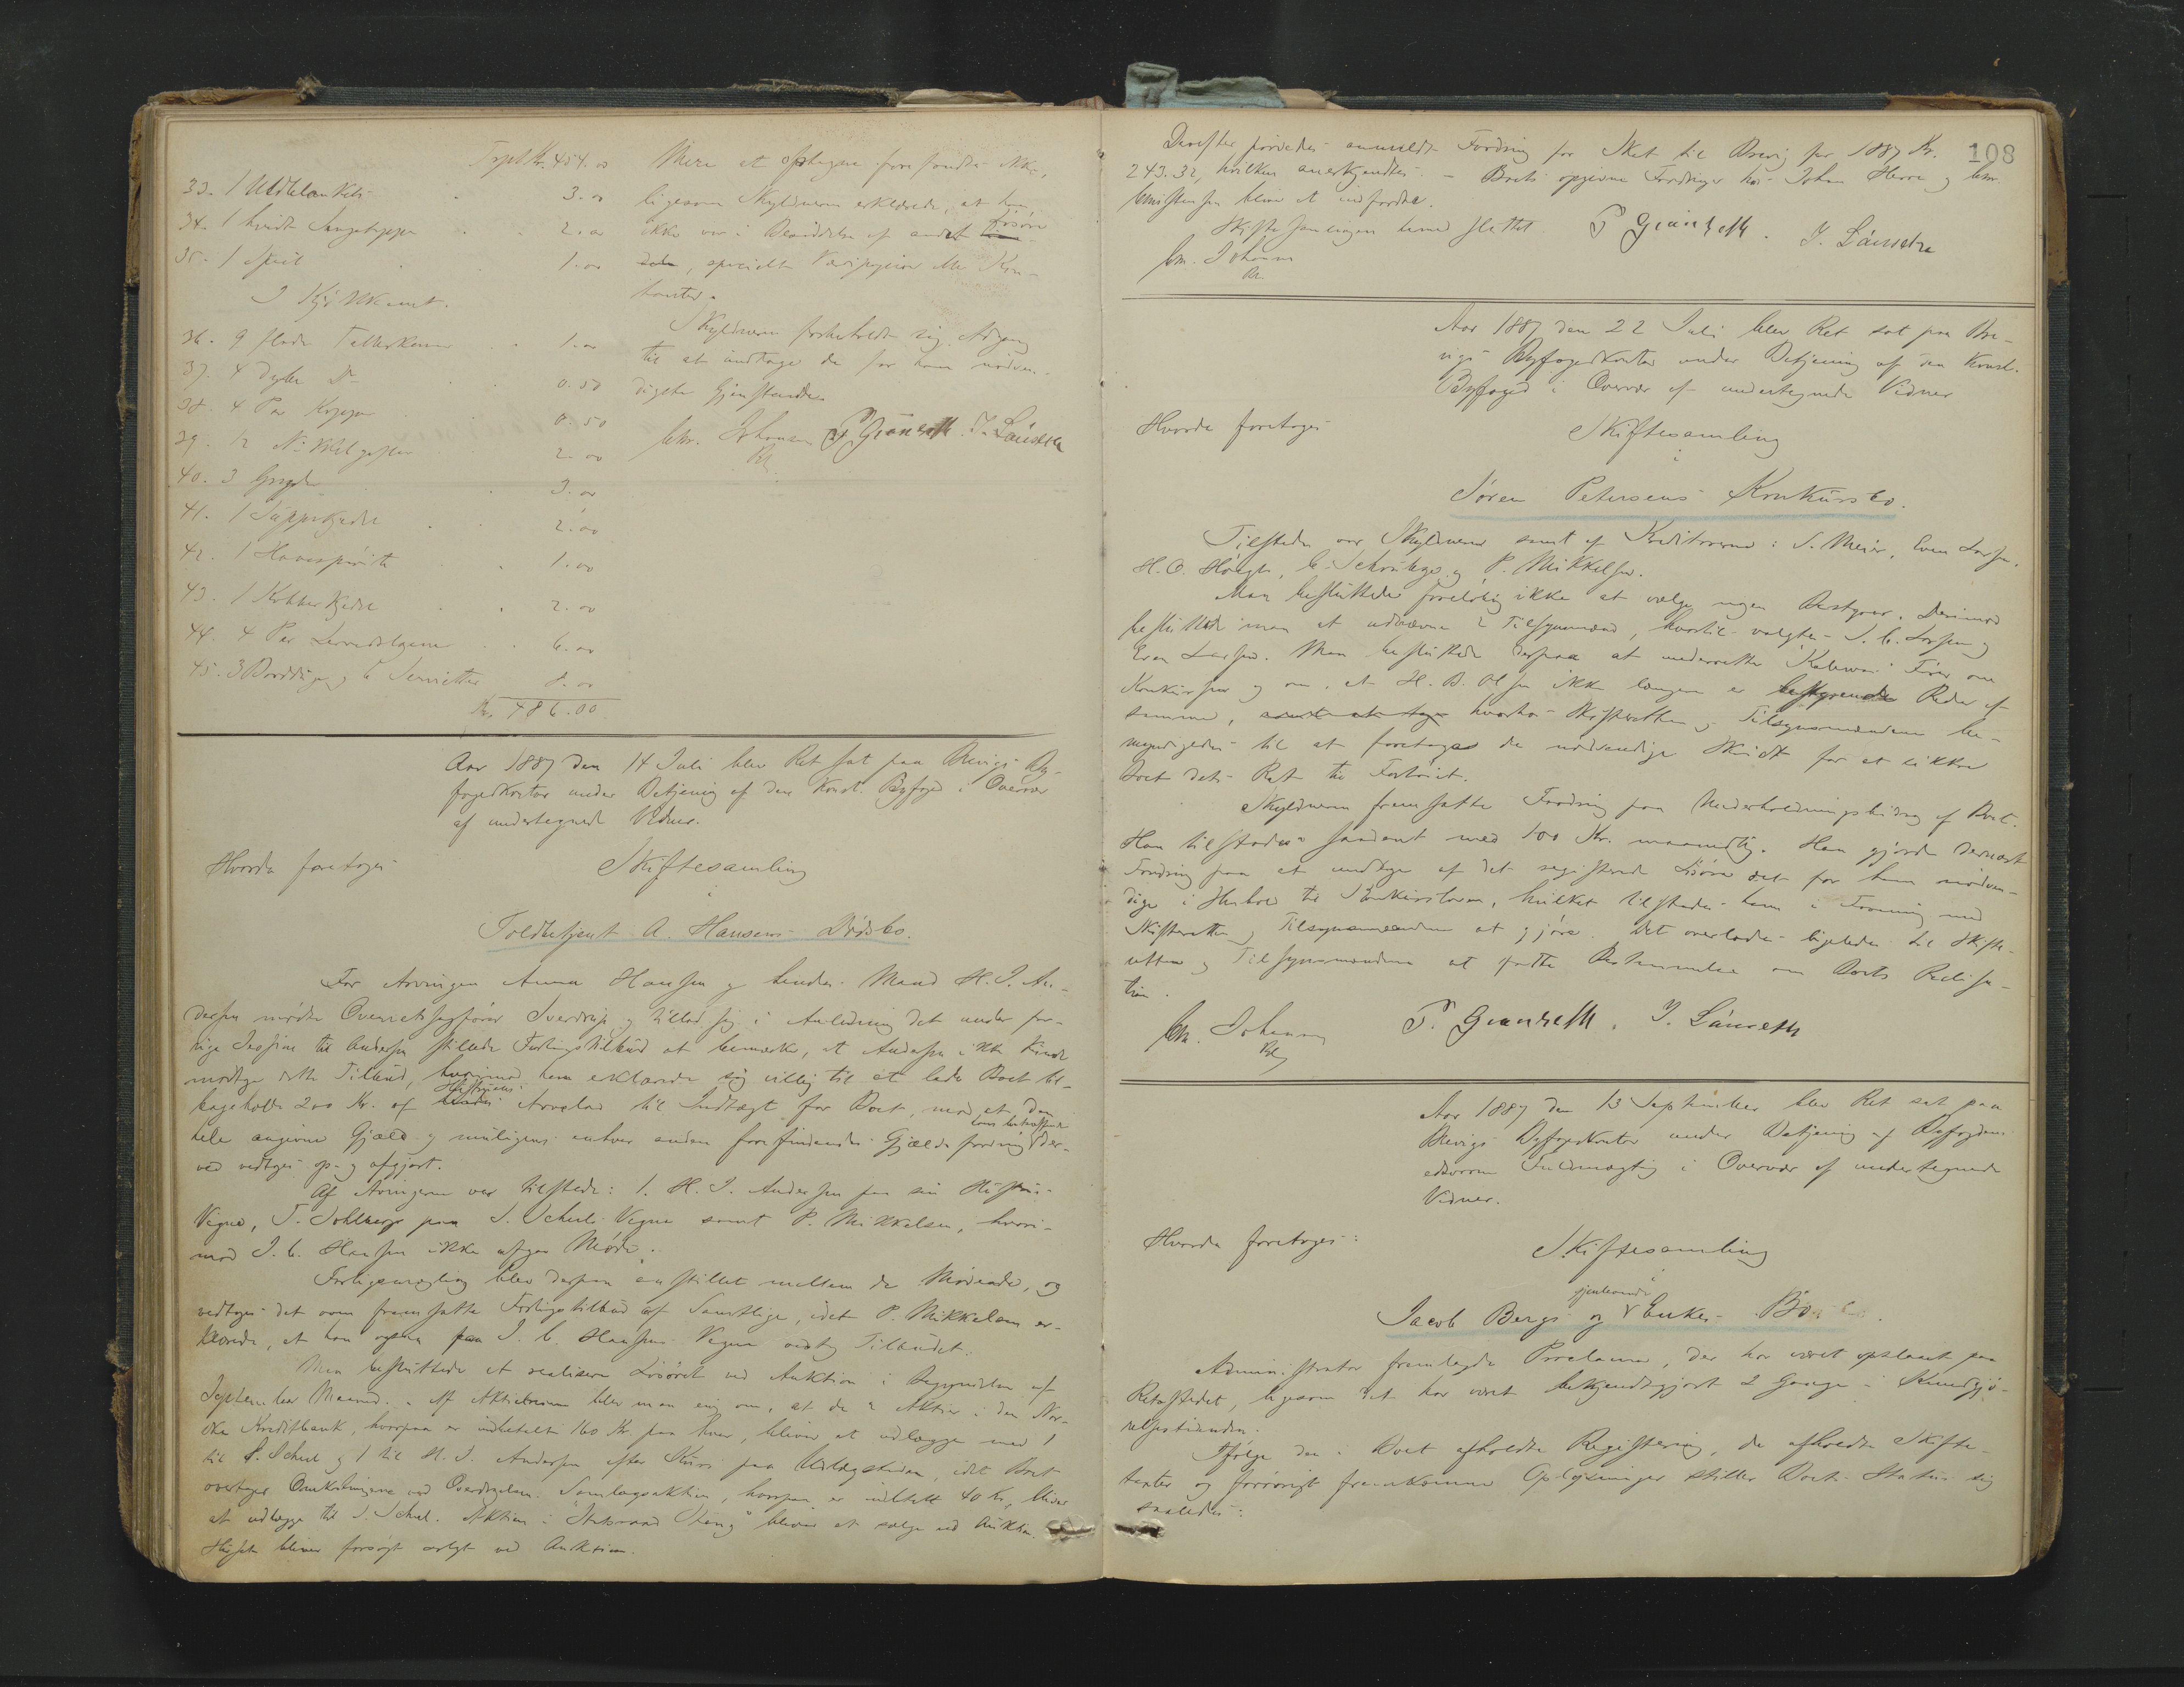 Trpt Kr. 454.00
33. 1 Uldblanket 3.00
34. 1 hvidt Sengetæppe 2.00
35. 1 Speil 1.00
I Kjøkkenet.
36. 9 flade Tallerkener 1.00
37. 4 dybe Do 0.50
38. 4 Par Kopper 0.50
39. 12 2.00
40. 3 Gryder 3.00
41. 1 Suppekjedel 2.00
42. 1 1.00
43. 1 Kobberkjedel 2.00
44. 4 Par Lerredslagene 6.00
45. 3 Borddüge og 6 Servietter 8.00
Kr. 486.00
Mere at optegne forefandtes ikke,
ligesom Skyldneren erklærede, at han
ikke var i Besiddelse af andet Løsøre
, specielt Værdipapirer eller Kon-
tanter.
Skyldneren forbeholdt sig Adgang
til at undtage de for ham nødven-
digste Gjenstande.
Chr. Johansen P. Grønseth. J. Lånseth
Aar 1887 den 14 Juli blev Ret sat paa Brevigs By-
fogedkontor under Betjening af den Konst. Byfoged i Overvær
af undertegnede Vidner.
Hvorda foretoges
Skiftesamling
i
Toldbetjent A. Hansens Dødsbo.
For Arvingen Anna Hansen og hendes Mand H. J. An-
dersen mødte Overretssagfører Sverdrup og tillod sig i Anledning det under for-
rige Session til Andersen stillede Forligstilbud at bemærke, at Andersen ikke kunde
modtage dette Tilbud, hvorimod han erklærede sig villig til at lade Boet til-
bageholde 200 Kr. af Hustruens Arvelod til Indtægt for Boet, mod at den
hele angivne Gjæld og muligens enhver anden forefindendes Gjældsfordring der-
ved vedtoges op- og afgjort.
Af Arvingerne var tilstede: 1. H. J. Andersen paa sin Hustrus
Vegne, T. Dohlberg paa S. Scheels Vegne samt P. Mikkelsen, hvori-
mod J. C. Hansen ikke afgav Møde.
Forligsmægling blev derpaa anstillet mellem de Mødende, og
vedtoges det oven fremsatte Forligstilbud af Samtlige, idet P. Mikkelsen er-
klærede, at han ogsaa paa J. C. Hansens Vegne vedtog Tilbudet.
Man besluttede at realisere Løsøret ved Auktion i Begyndelsen af
September Maaned. Af Aktierne blev man enig om, at de 2 Aktier i den Nor-
ske Kreditbank, hvorpaa er indbetalt 160 Kr. paa hver, bliver at udlægge med 1
til S. Scheel og 1 til H. J. Andersen efter Kurs paa Udlægstiden, idet Boet
overtager Omkostningerne ved Overdragelsen. Samlagsaktien, hvorpaa er indbetalt 40 Kr., bliver
at udlægge til S. Scheel. Aktien i bliver at sælge ved Auktion.
Huset bliver forsøgt solgt ved Auktion.
108
Derefter anmeldt Fordring for Skat til Brevig for 1887 Kr.
243.32, hvilken anerkjendtes. — Boets opgivne Fordringer hos Johan Herre og Chr.
Christensen bliver at indfordre.
Skiftesamlingen hermed sluttet P. Grønseth. J. Lånseth
Chr. Johansen
Aar 1887 den 22 Juli blev Ret sat paa Bre-
vigs Byfogedkontor under Betjening af den Konst.
Byfoged i Overvær af undertegnede Vidner
Hvorda foretoges
Skiftesamling
i
Søren Petersens Konkursbo.
Tilstede var Skyldneren samt af Kreditorerne: S. Meier, Even Larsen,
H. O. Høegh, C. Schrübge, og P. Mikkelsen.
Man besluttede foreløbig ikke at vælge nogen Bestyrer. Derimod
besluttede man at udnævne 2 Tilsynsmænd, hvortil valgtes J. C. Larsen og
Even Larsen. Man besluttede derpaa at underrette Fører om
Konkursen og om, at H. B. Olsen ikke længere er bestyrende Reder af
samme, hvorhos Skifteretten og Tilsynsmændene be-
myndigedes til at foretage de nødvendige Skridt for at sikkre
Boet dets Ret til Fartøiet.
Skyldneren fremsatte Fordring paa Underholdningsbidrag af Boet.
Han tilstodes saadant med 100 Kr. maanedlig. Han gjorde dernæst
Fordring paa at undtage af det registrerede Løsøre det for ham nødven-
dige i Henhold til Konkursloven, hvilket tilstodes ham i Forening med
Skifteretten og Tilsynsmændene at gjøre. Det overlodes ligeledes til Skifte-
retten og Tilsynsmændene at fatte Bestemmelse om Boets Realisa-
tion.
Chr. Johansen P. Grønseth. J. Lånseth
Aar 1887 den 13 September blev Ret sat paa
Brevigs Byfogedkontor under Betjening af Byfogdens
edsvorne Fuldmægtig i Overvær af undertegnede
Vidner.
Hvorda foretoges:
Skiftesamling
i
Jacob Bergs og gjenlevende Enkes Bo.
Administrator fremlagde Proclama, der har været opslaaet paa
Retsstedet, ligesom det har været bekjendtgjort 2 Gange i Kundgjø-
relsestidende.
Ifølge den i Boet afholdte Registrering, de afholdte Skifte-
taxter og forøvrigt fremkomne Oplysninger stiller Boets Status sig
saaledes: